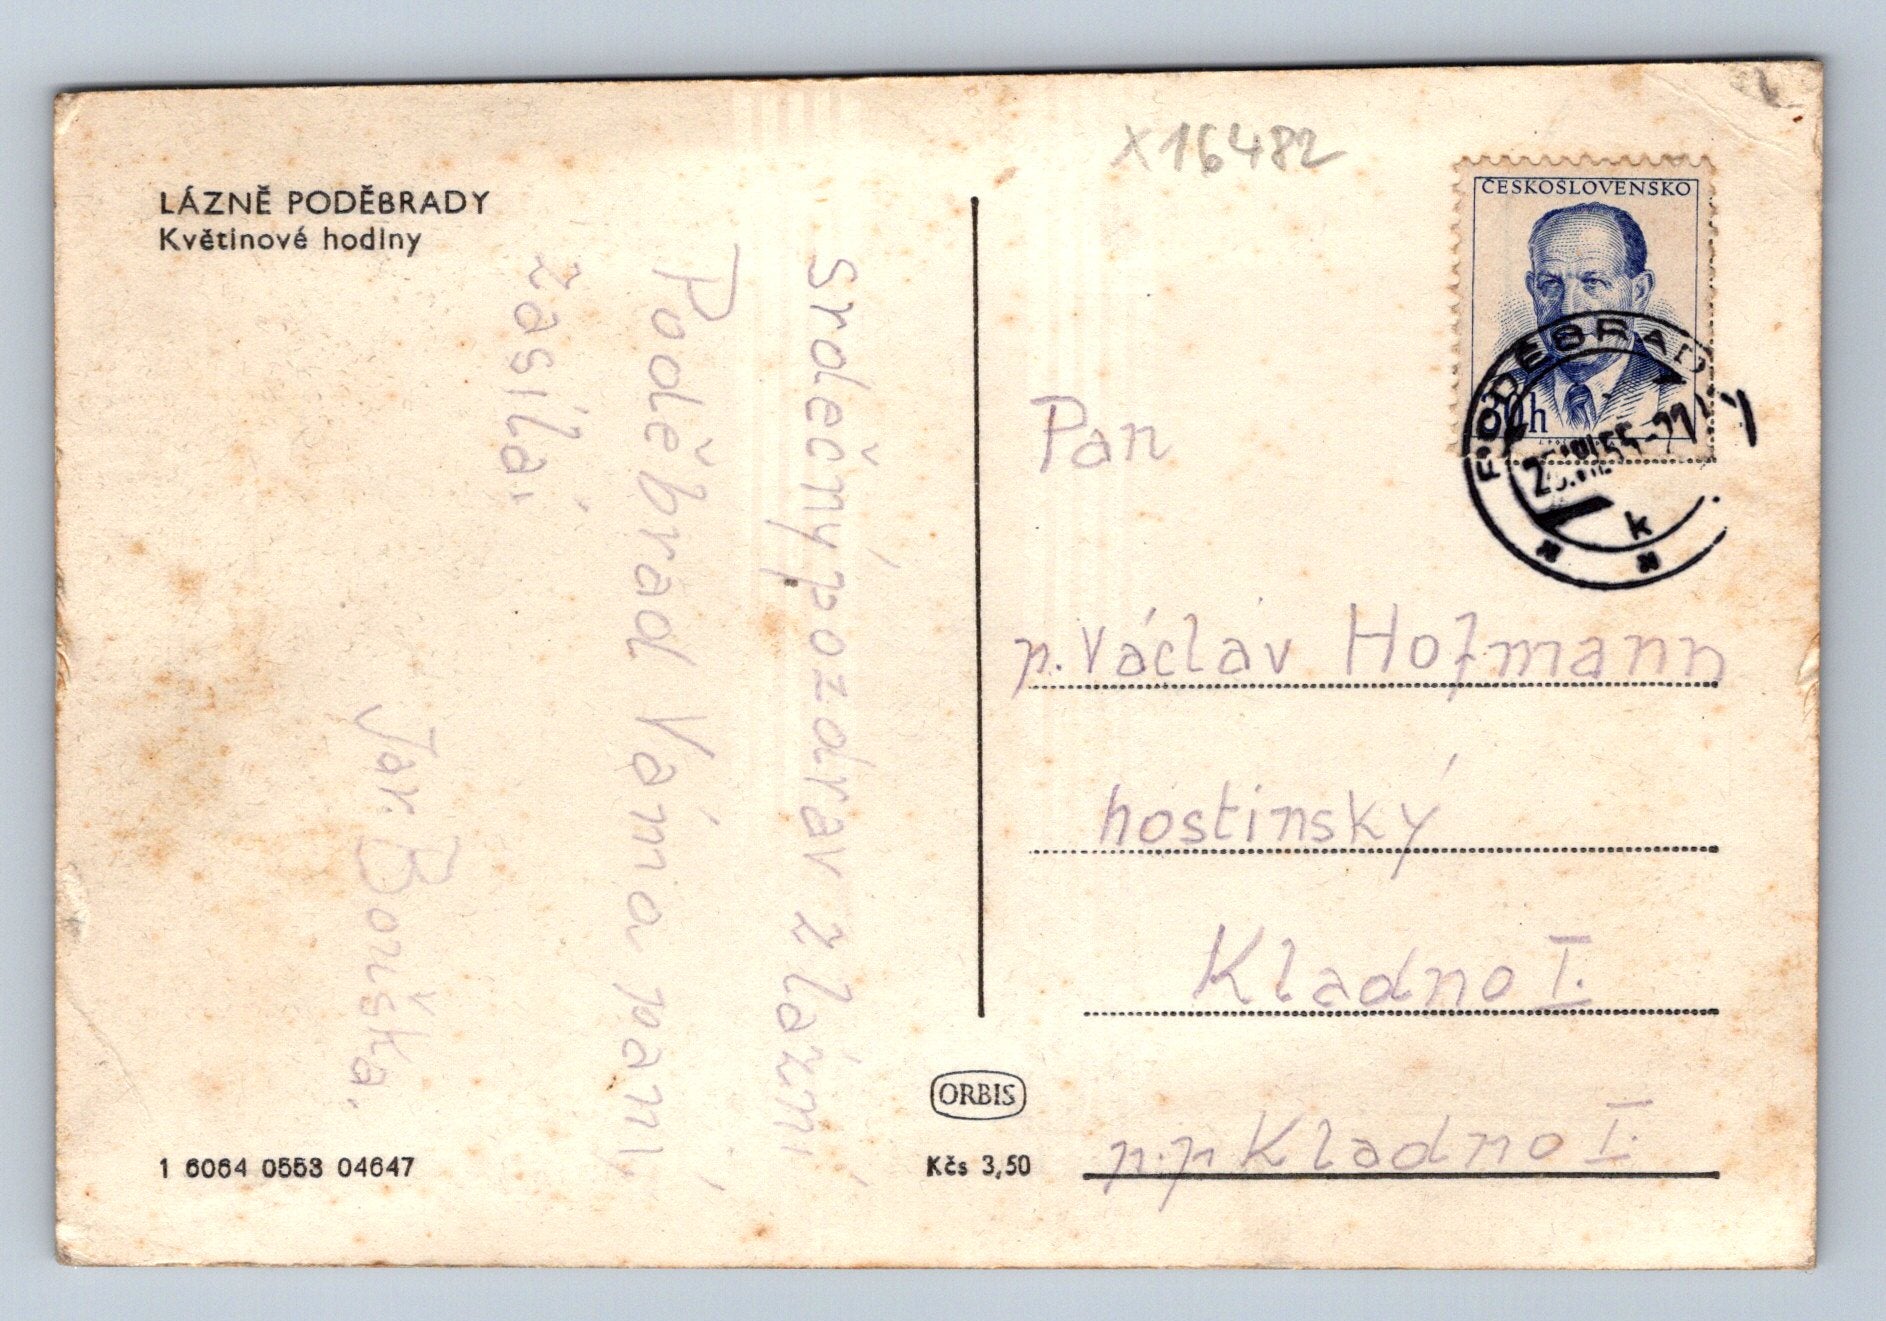 LÁZNĚ PODĚBRADY
Květinové hodiny
srdečný pozdrav z lázní
Poděbrad Váma paní
zasílá,
Jar. Bouška.
1 6064 0553 04647
ORBIS
Kčs 3,50
X16482
ČESKOSLOVENSKO
h
PODĚBRADY
55-
k
Pan
p. Václav Hofmann
hostinský
Kladno I.
p.p Kladno I.